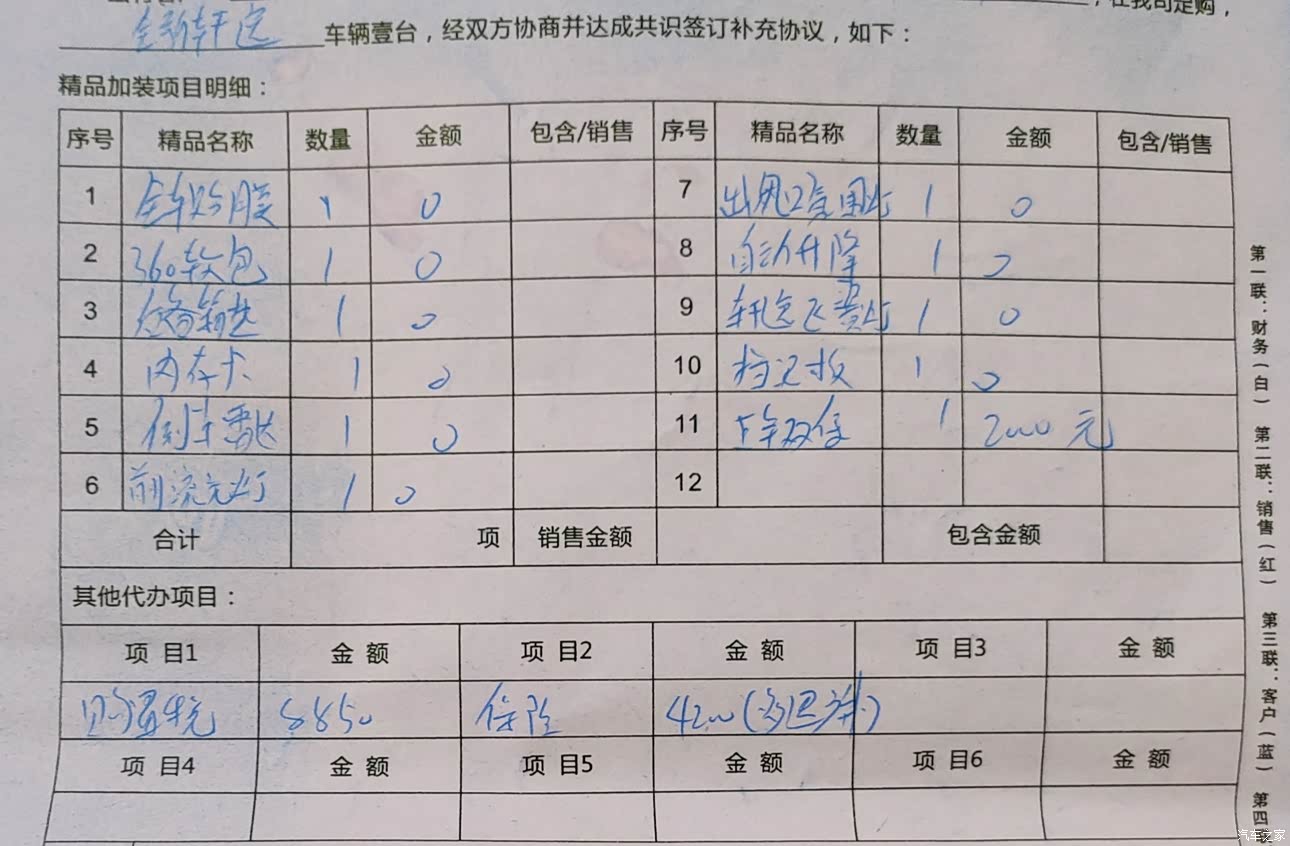 ，在我司定购，
全新轩逸 车辆壹台，经双方协商并达成共识签订补充协议，如下：
精品加装项目明细：
序号 精品名称 数量 金额 包含/销售 序号 精品名称 数量 金额 包含/销售
1 全车贴膜 1 0 7 出风口氛围灯 1 0
2 360软包 1 0 8 自动升降 1 0
3 后备箱垫 1 0 9 轩逸飞翼灯 1 0
4 内存卡 1 0 10 1 0
5 倒车雷达 1 0 11 2000元
6 前流光灯 1 0 12
合计 项 销售金额 包含金额
其他代办项目：
项 目1 金 额 项 目2 金 额 项 目3 金 额
购置税 8850 保险 4200(多退少补)
项 目4 金 额 项 目5 金 额 项 目6 金 额
第一联：财务(白) 第二联：销售(红) 第三联：客户(蓝) 第四联
汽车之家